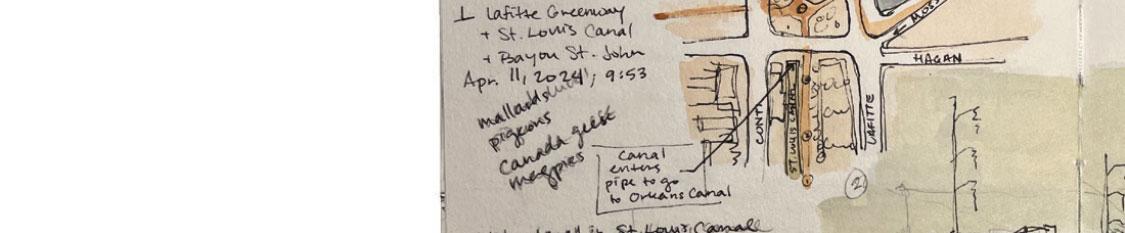 ⊥ Lafitte Greenway
+ St. Louis Canal
+ Bayou St. John
Apr. 11, 2024, 9:53
pigeons
canada geese
magpies
Canal
enters
pipe to go
to Orleans Canal
CONTI
ST. LOUIS CANAL
LAFITTE
HAGAN
2
in St. Louis Canal